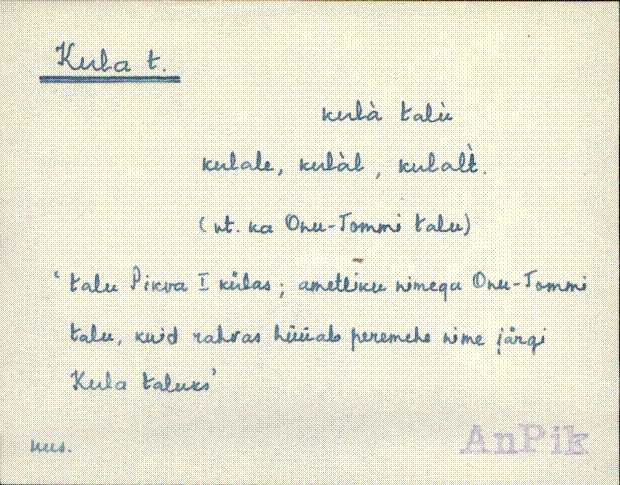 Kula t.
kulà talù
kulale, kulàl, kulalt̀.
(vt. ka Onu-Tommi talu)
'talu Pikva I külas; ametliku nimega Onu-Tommi
talu, kuid rahvas hüüab peremehe nime järgi
Kula taluks'
uus.
AnPik